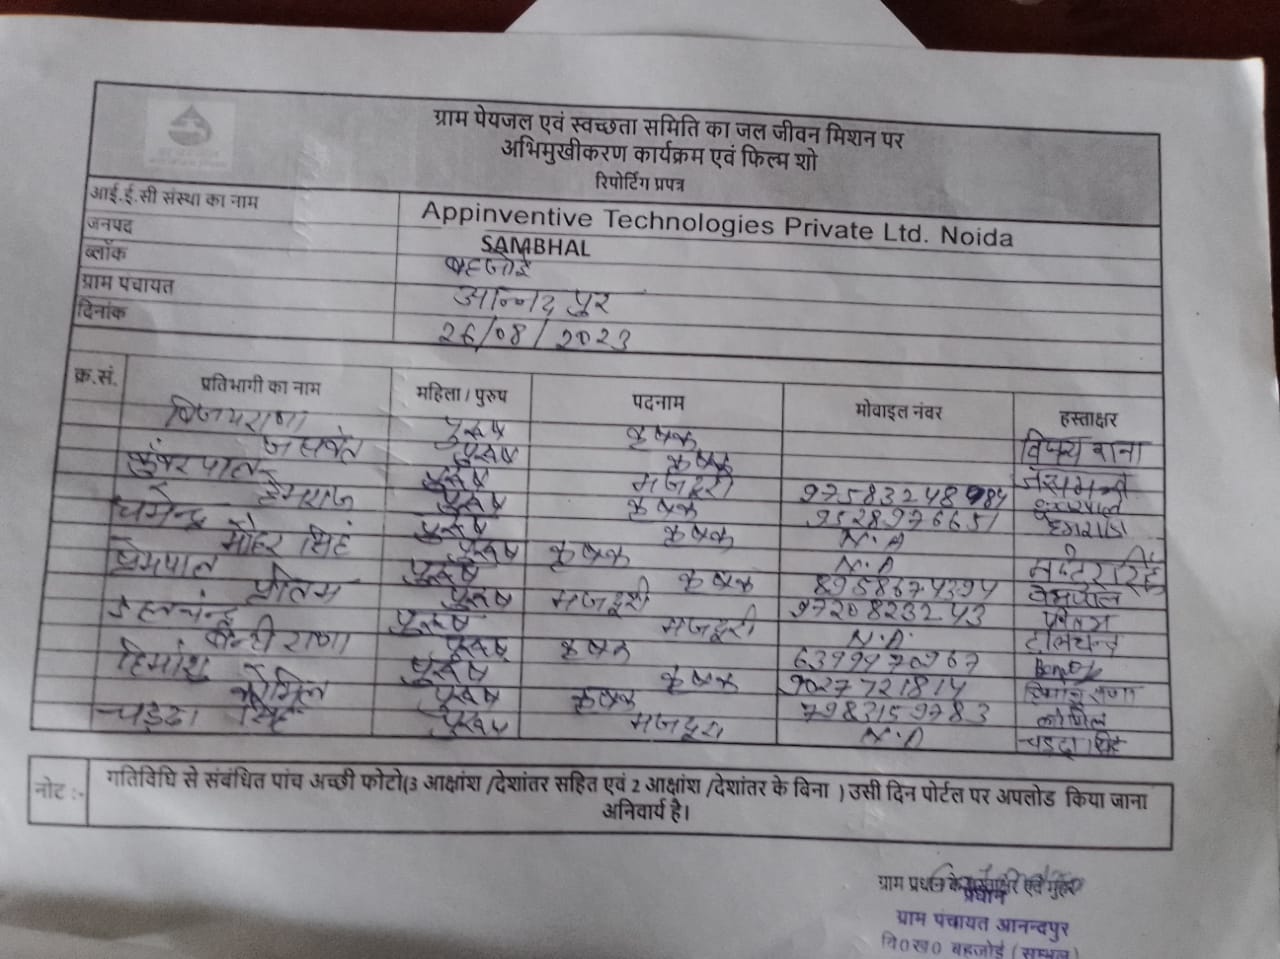 ग्राम पेयजल एवं स्वच्छता समिति का जल जीवन मिशन पर
अभिमुखीकरण कार्यक्रम एवं फिल्म शो
रिपोर्टिंग प्रपत्र
आई.ई.सी संस्था का नाम Appinventive Technologies Private Ltd. Noida
जनपद SAMBHAL
ब्लॉक बहजोई
ग्राम पंचायत आन्नदपुर
दिनांक 26/08/2023
क्र.सं. प्रतिभागी का नाम महिला / पुरुष पदनाम मोवाइल नंवर हस्ताक्षर
विजयराणा पुरूष कृषक विजय राना
जसवंत पुरूष कृषक
कुंवरपाल पुरूष मजदूरी
हेमराज पुरूष कृषक 9528976651 हेमराज
धर्मेन्द्र पुरूष कृषक N.A
मोहर सिहं पुरूष कृषक N.A
प्रेमपाल पुरूष कृषक 8958674394 प्रेमपाल
प्रीतम पुरूष मजदूरी 9720823243 प्रीतम
टालचन्द्र पुरूष मजदूरी N.A. टालचन्द
बन्टी राणा पुरूष कृषक 6399970967
हिमांशु पुरूष कृषक 9027721814 हिमांशु राणा
कोमिल पुरूष कृषक 7983159783 कोमिल
चड्डा सिंह पुरूष मजदूरी N.A चड्डा सिंह
नोट :- गतिविधि से संबंधित पांच अच्छी फोटो(3 आक्षांश /देशांतर सहित एवं 2 आक्षांश /देशांतर के बिना ) उसी दिन पोर्टल पर अपलोड किया जाना
अनिवार्य है।
ग्राम प्रधान के हस्ताक्षर एवं मुहर
प्रधान
ग्राम पंचायत आनन्दपुर
वि0ख0 बहजोई (सम्भल)